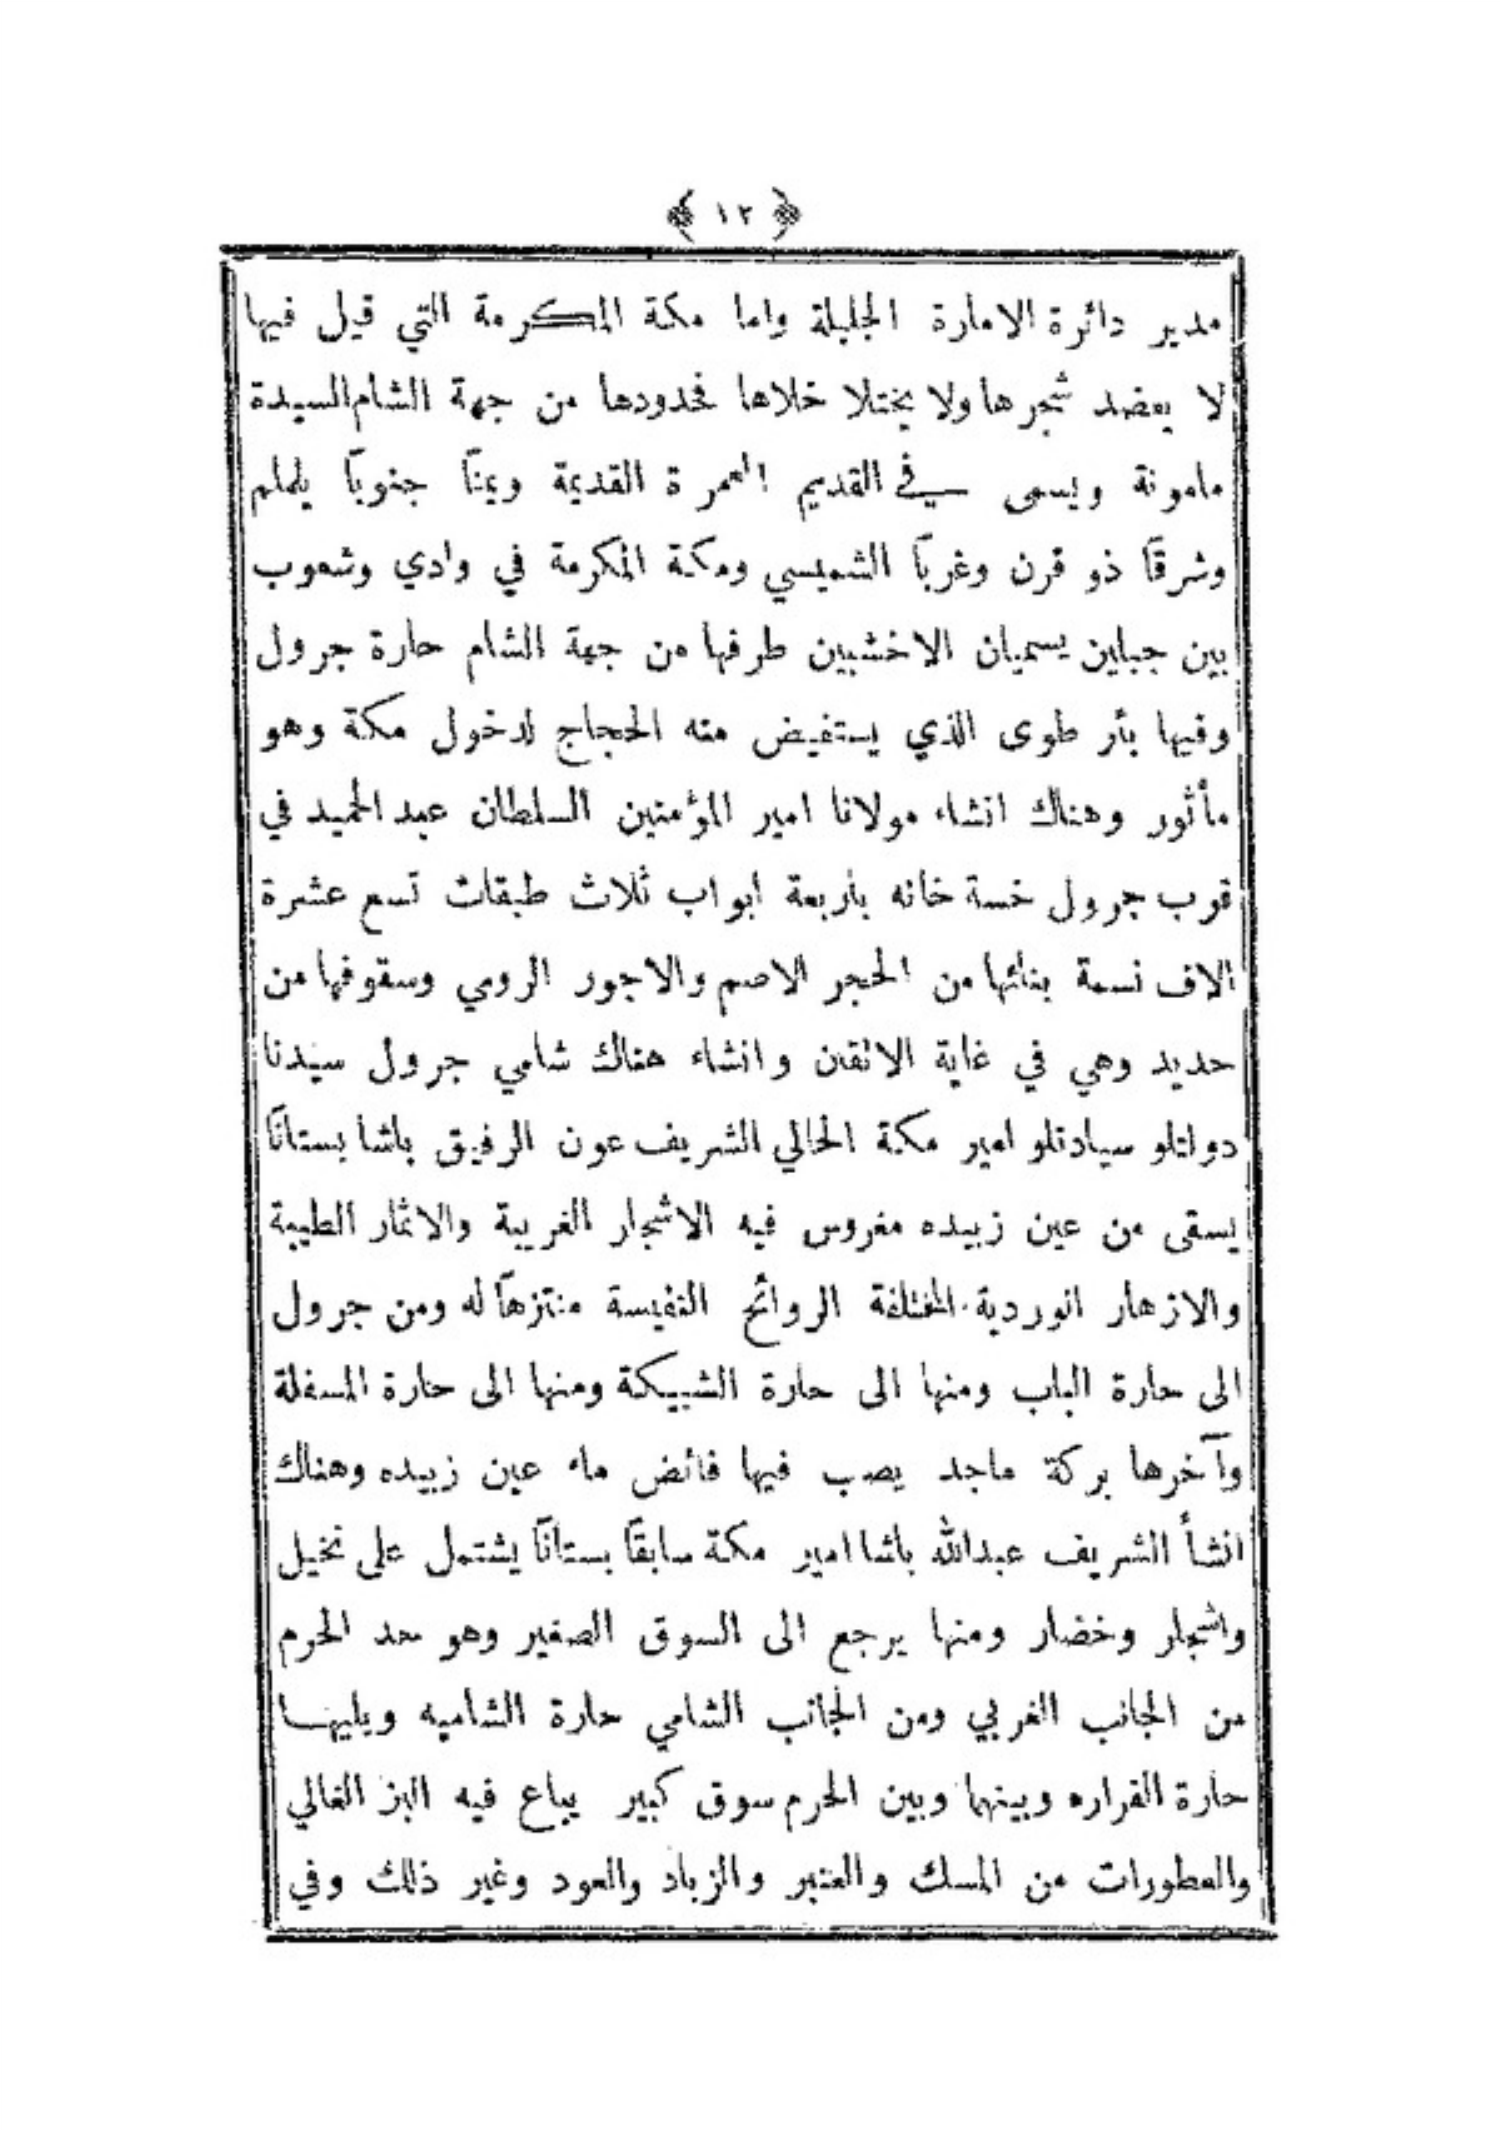 ﴿ ١٢ ﴾
مدير دائرة الامارة الجليلة واما مكة المكرمة التي قيل فيها
لا يعضد شجرها ولا يختلا خلاها فحدودها من جهة الشام السيدة
مامونة ويسمى في القديم العمرة القديمة ويمنًا جنوبًا يلملم
وشرقًا ذو قرن وغربًا الشميسي ومكة المكرمة في وادي وشعوب
بين جبلين يسميان الاخشبين طرفها من جهة الشام حارة جرول
وفيها بأر طوى الذي يستفيض منه الحجاج لدخول مكة وهو
مأثور وهناك انشاء مولانا امير المؤمنين السلطان عبد الحميد في
قرب جرول خسة خانه باربعة ابواب ثلاث طبقات تسع عشرة
الاف نسمة بنائها من الحجر الاصم والاجور الرومي وسقوفها من
حديد وهي في غاية الاتقان وانشاء هناك شامي جرول سيدنا
دولتلو سيادتلو امير مكة الحالي الشريف عون الرفيق باشا بستانًا
يسقى من عين زبيده مغروس فيه الاشجار الغريبة والاثمار الطيبة
والازهار الوردية المختلفة الروائح النفيسة منتزهًا له ومن جرول
الى حارة الباب ومنها الى حارة الشبيكة ومنها الى حارة المسفلة
وآخرها بركة ماجد يصب فيها فائض ماء عين زبيده وهناك
انشأ الشريف عبدالله باشا امير مكة سابقًا بستانًا يشتمل على نخيل
واشجار وخضار ومنها يرجع الى السوق الصغير وهو حد الحرم
من الجانب الغربي ومن الجانب الشامي حارة الشاميه ويليها
حارة القراره وبينهما وبين الحرم سوق كبير يباع فيه البز الغالي
والعطورات من المسك والعنبر والزباد والعود وغير ذلك وفي